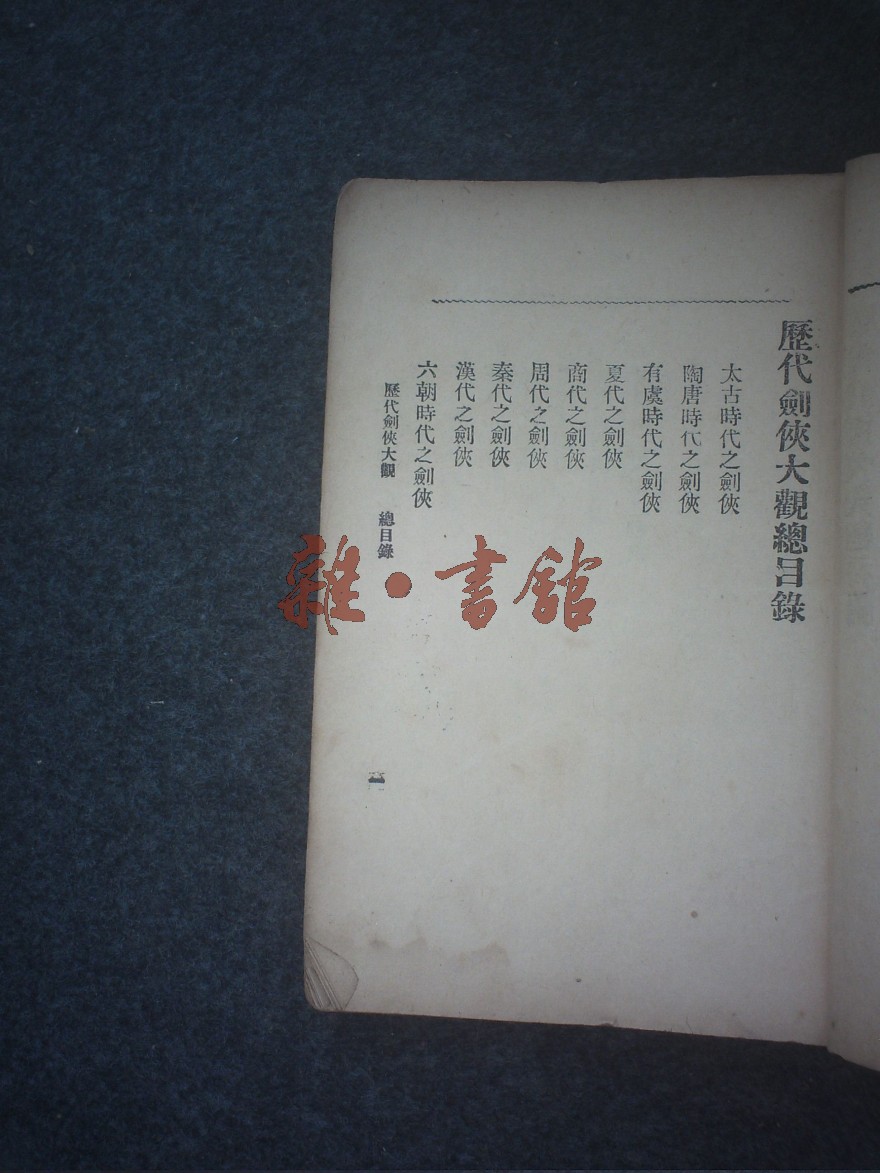 歷代劍俠大觀總目錄
太古時代之劍俠
陶唐時代之劍俠
有虞時代之劍俠
夏代之劍俠
商代之劍俠
周代之劍俠
秦代之劍俠
漢代之劍俠
六朝時代之劍俠
歷代劍俠大觀 總目錄
一
雜·書館